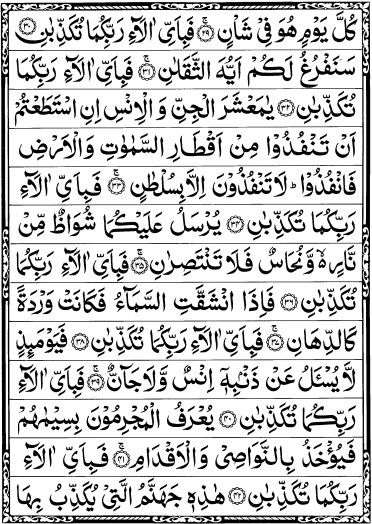 كُلَّ يَوْمٍ هُوَ فِيْ شَاْنٍ ۚ﴿۲۹﴾ فَبِاَيِّ اٰلَآءِ رَبِّكُمَا تُكَذِّبٰنِ ﴿۳۰﴾
سَنَفْرُغُ لَكُمْ اَيُّهَ الثَّقَلٰنِ ۚ﴿۳۱﴾ فَبِاَيِّ اٰلَآءِ رَبِّكُمَا
تُكَذِّبٰنِ ﴿۳۲﴾ يٰمَعْشَرَ الْجِنِّ وَ الْاِنْسِ اِنِ اسْتَطَعْتُمْ
اَنْ تَنْفُذُوْا مِنْ اَقْطَارِ السَّمٰوٰتِ وَ الْاَرْضِ
فَانْفُذُوْا ؕ لَا تَنْفُذُوْنَ اِلَّا بِسُلْطٰنٍ ۚ﴿۳۳﴾ فَبِاَيِّ اٰلَآءِ
رَبِّكُمَا تُكَذِّبٰنِ ﴿۳۴﴾ يُرْسَلُ عَلَيْكُمَا شُوَاظٌ مِّنْ
نَّارٍ ۙ۬ وَّ نُحَاسٌ فَلَا تَنْتَصِرٰنِ ۚ﴿۳۵﴾ فَبِاَيِّ اٰلَآءِ رَبِّكُمَا
تُكَذِّبٰنِ ﴿۳۶﴾ فَاِذَا انْشَقَّتِ السَّمَآءُ فَكَانَتْ وَرْدَةً
كَالدِّهَانِ ۚ﴿۳۷﴾ فَبِاَيِّ اٰلَآءِ رَبِّكُمَا تُكَذِّبٰنِ ﴿۳۸﴾ فَيَوْمَئِذٍ
لَّا يُسْـَٔلُ عَنْ ذَنْۢبِهٖۤ اِنْسٌ وَّ لَا جَآنٌّ ۚ﴿۳۹﴾ فَبِاَيِّ اٰلَآءِ
رَبِّكُمَا تُكَذِّبٰنِ ﴿۴۰﴾ يُعْرَفُ الْمُجْرِمُوْنَ بِسِيْمٰهُمْ
فَيُؤْخَذُ بِالنَّوَاصِيْ وَ الْاَقْدَامِ ۚ﴿۴۱﴾ فَبِاَيِّ اٰلَآءِ
رَبِّكُمَا تُكَذِّبٰنِ ﴿۴۲﴾ هٰذِهٖ جَهَنَّمُ الَّتِيْ يُكَذِّبُ بِهَا